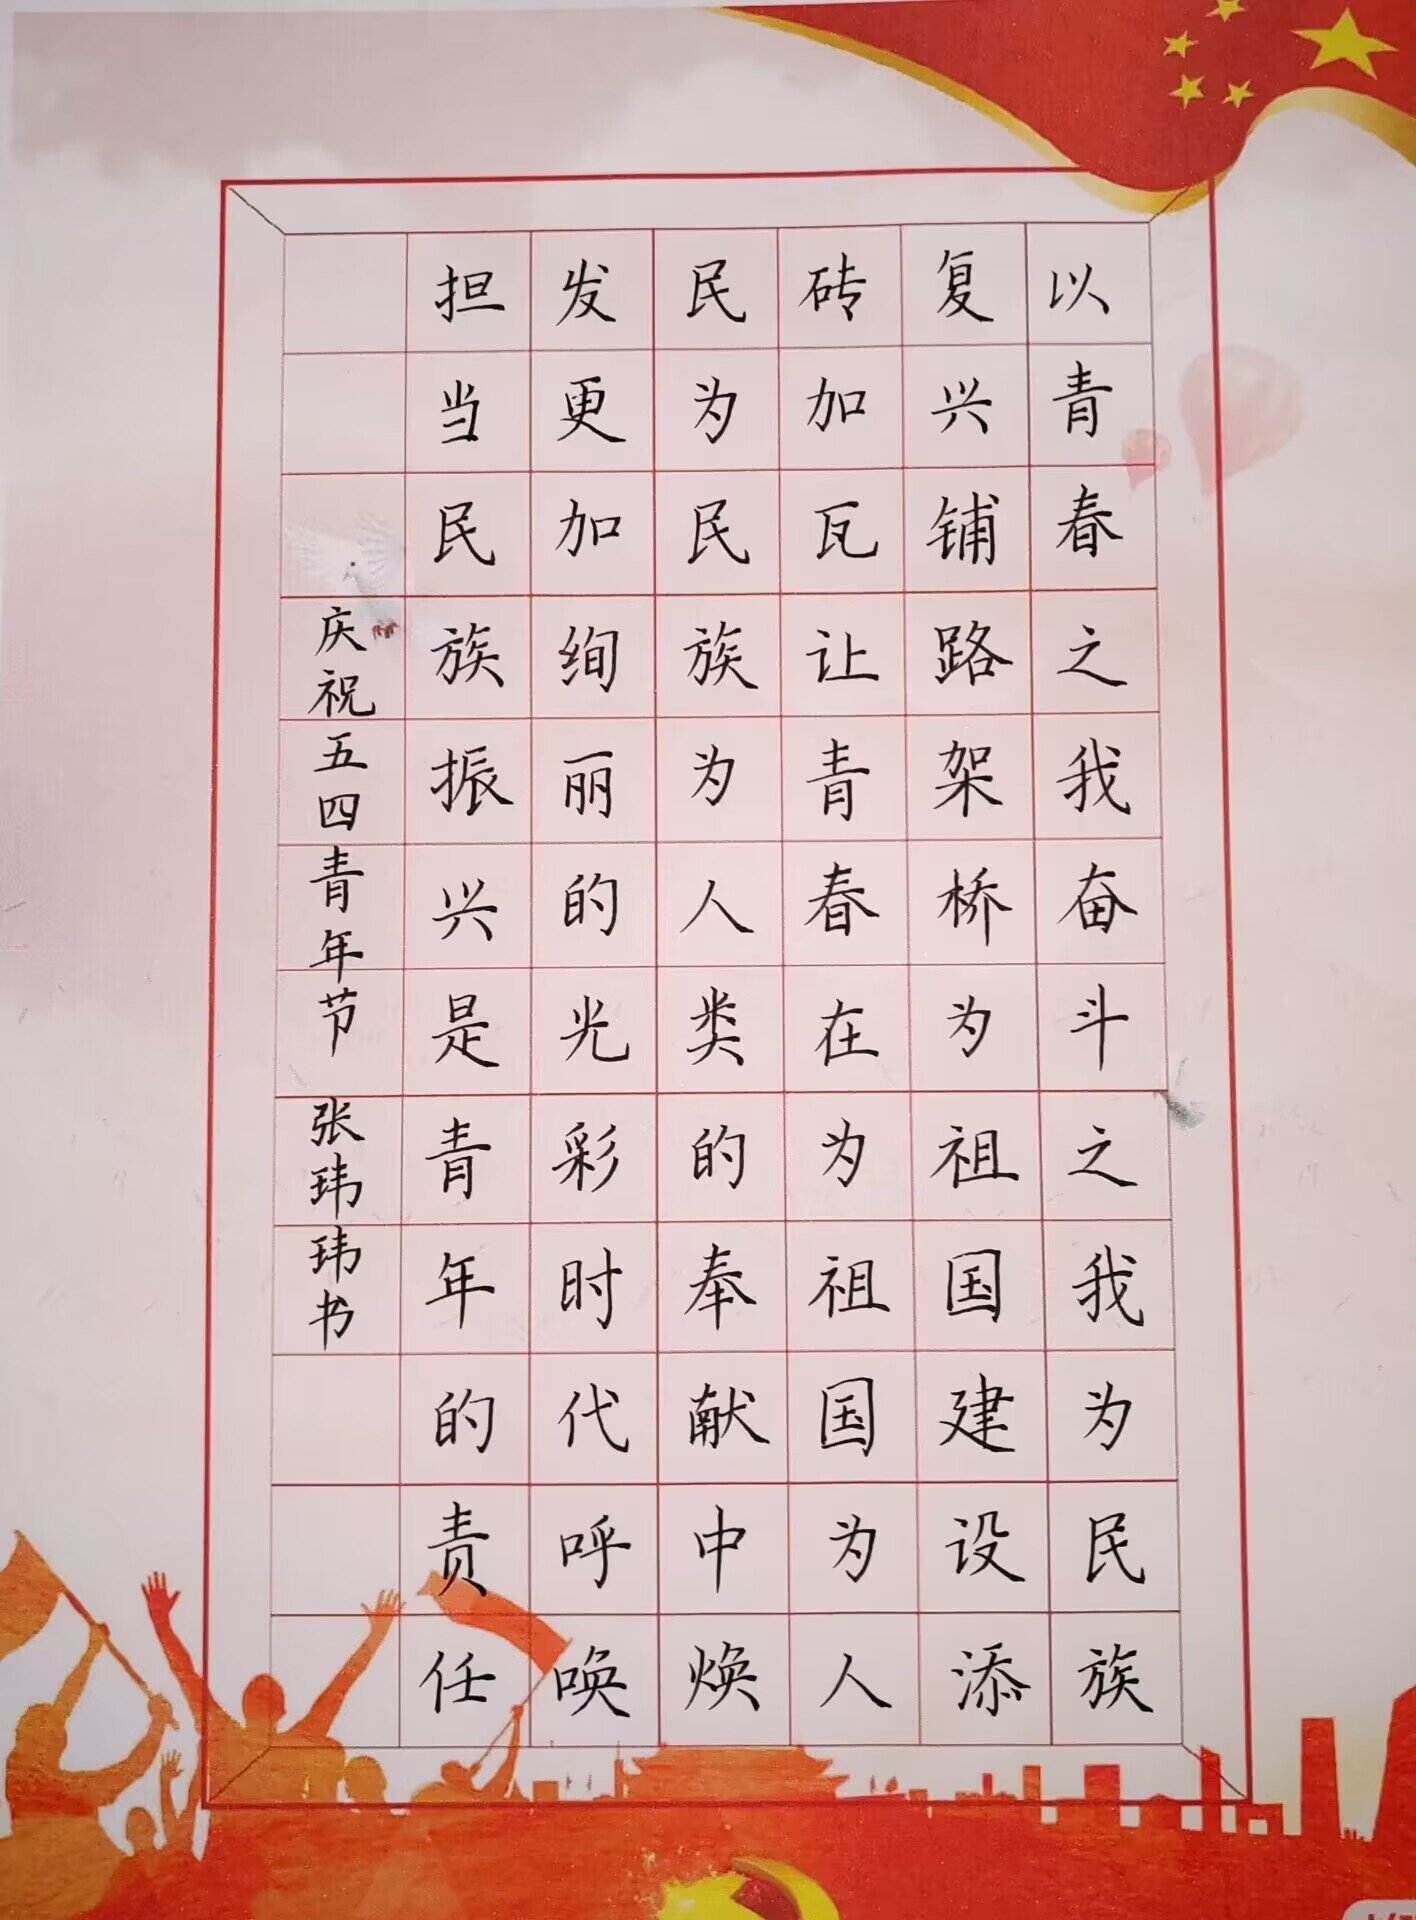 以青春之我奋斗之我为民族
复兴铺路架桥为祖国建设添
砖加瓦让青春在为祖国为人
民为民族为人类的奉献中焕
发更加绚丽的光彩时代呼唤
担当民族振兴是青年的责任
庆祝五四青年节 张玮玮书